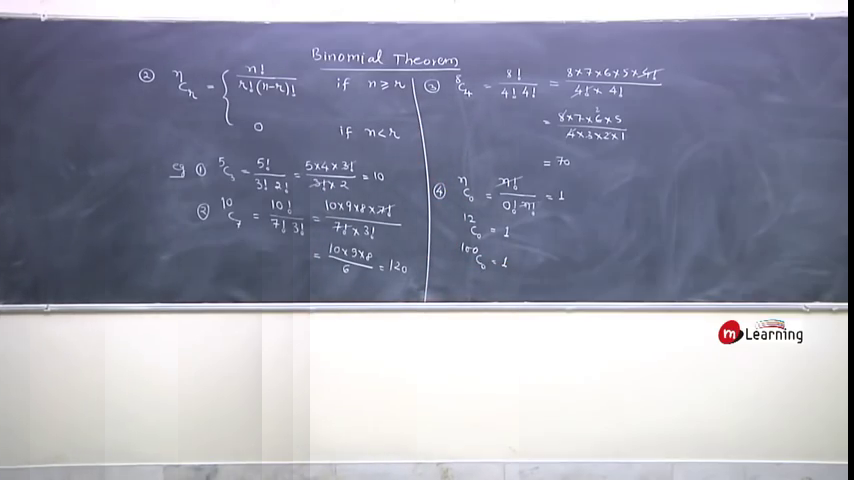 Binomial Theorem
② ⁿCᵣ = { n! / r!(n-r)! if n ≥ r
0 if n < r
eg ① ⁵C₃ = 5! / 3! 2! = 5×4×3! / 3!×2 = 10
② ¹⁰C₇ = 10! / 7! 3! = 10×9×8×7! / 7!×3!
= 10×9×8 / 6 = 120
③ ⁸C₄ = 8! / 4! 4! = 8×7×6×5×4! / 4!×4!
= 8×7×6×5 / 4×3×2×1
2
= 70
④ ⁿC₀ = n! / 0! n! = 1
¹²C₀ = 1
¹⁰⁰C₀ = 1
m Learning